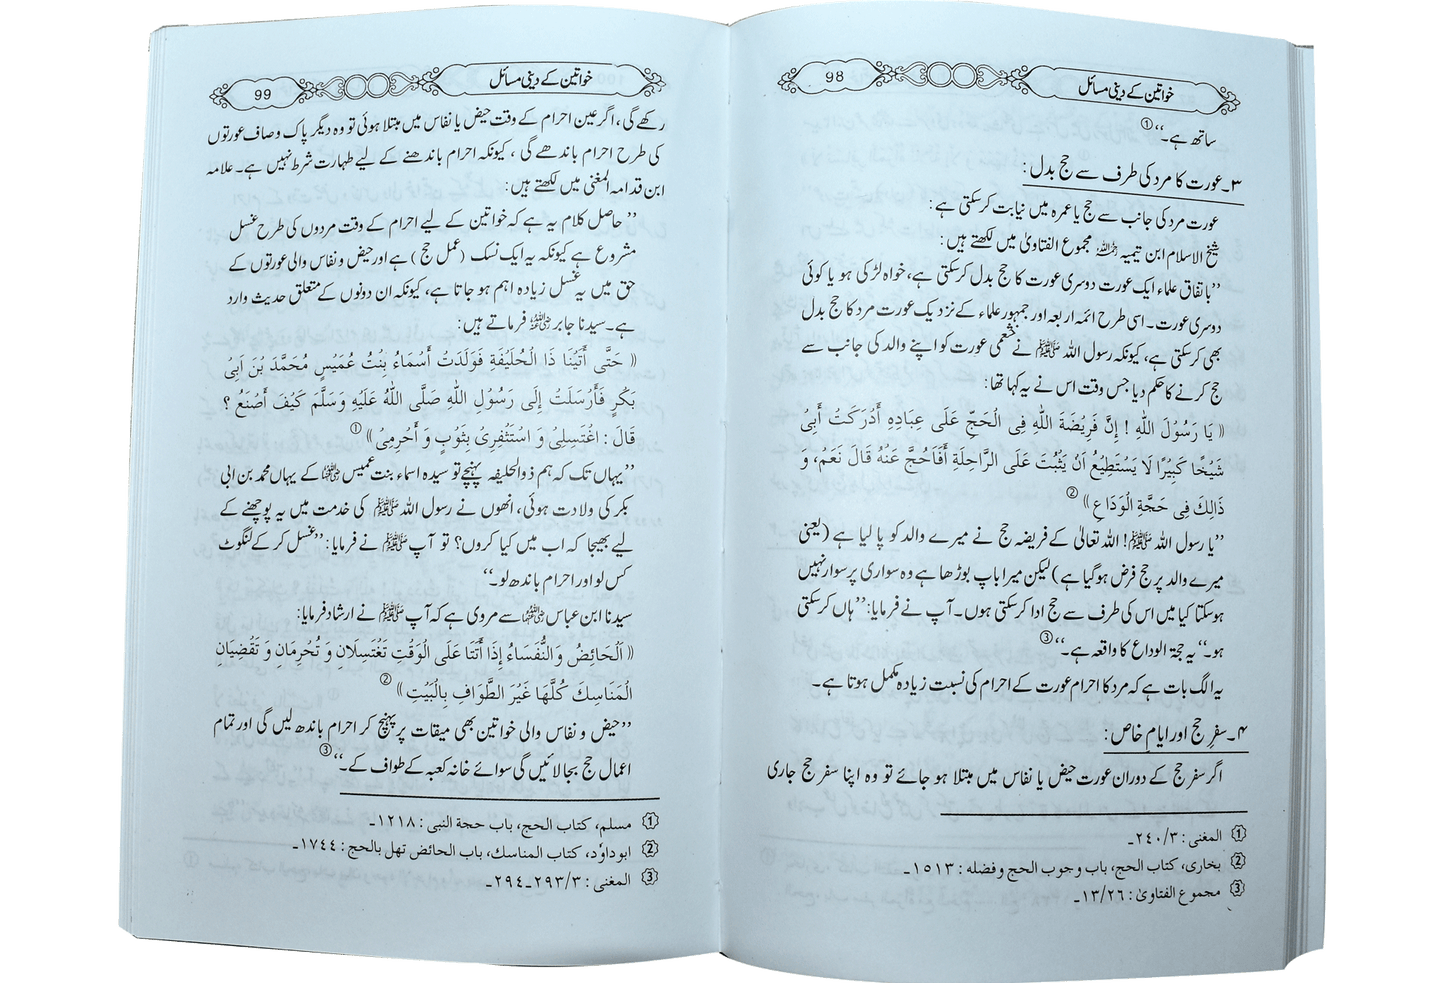 خواتین کے دینی مسائل 98
ساتھ ہے۔‘‘①
۳۔عورت کا مرد کی طرف سے حج بدل:
عورت مرد کی جانب سے حج یا عمرہ میں نیابت کر سکتی ہے:
شیخ الاسلام ابن تیمیہ رحمہ اللہ مجموع الفتاویٰ میں لکھتے ہیں:
’’باتفاق علماء ایک عورت دوسری عورت کا حج بدل کر سکتی ہے، خواہ لڑکی ہو یا کوئی
دوسری عورت۔ اسی طرح ائمہ اربعہ اور جمہور علماء کے نزدیک عورت مرد کا حج بدل
بھی کر سکتی ہے، کیونکہ رسول اللہ ﷺ نے خثعمی عورت کو اپنے والد کی جانب سے
حج کرنے کا حکم دیا جس وقت اس نے یہ کہا تھا:
((یَا رَسُوْلَ اللّٰہِ ! إِنَّ فَرِیْضَةَ اللّٰہِ فِی الْحَجِّ عَلَی عِبَادِہِ أَدْرَکَتْ أَبِیْ
شَیْخًا کَبِیْرًا لَا یَسْتَطِیْعُ اَنْ یَثْبُتَ عَلَی الرَّاحِلَةِ أَفَاَحُجَّ عَنْهُ قَالَ نَعَمْ، وَ
ذَالِكَ فِی حَجَّةِ الْوَدَاعِ))②
’’یا رسول اللہ ﷺ! اللہ تعالیٰ کے فریضہ حج نے میرے والد کو پا لیا ہے (یعنی
میرے والد پر حج فرض ہو گیا ہے) لیکن میرا باپ بوڑھا ہے وہ سواری پر سوار نہیں
ہو سکتا کیا میں اس کی طرف سے حج ادا کر سکتی ہوں۔ آپ نے فرمایا: ’’ہاں کر سکتی
ہو۔‘‘ یہ حجۃ الوداع کا واقعہ ہے۔‘‘③
یہ الگ بات ہے کہ مرد کا احرام عورت کے احرام کی نسبت زیادہ مکمل ہوتا ہے۔
۴۔سفرِ حج اور ایامِ خاص:
اگر سفر حج کے دوران عورت حیض یا نفاس میں مبتلا ہو جائے تو وہ اپنا سفر حج جاری
① المغنی: ۳/۲۴۰۔
② بخاری، کتاب الحج، باب وجوب الحج وفضلہ: ۱۵۱۳۔
③ مجموع الفتاویٰ: ۱۳/۲۶۔
خواتین کے دینی مسائل 99
رکھے گی، اگر عین احرام کے وقت حیض یا نفاس میں مبتلا ہوئی تو وہ دیگر پاک و صاف عورتوں
کی طرح احرام باندھے گی، کیونکہ احرام باندھنے کے لیے طہارت شرط نہیں ہے۔ علامہ
ابن قدامہ المغنی میں لکھتے ہیں:
’’حاصل کلام یہ ہے کہ خواتین کے لیے احرام کے وقت مردوں کی طرح غسل
مشروع ہے کیونکہ یہ ایک نسک (عمل حج) ہے اور حیض و نفاس والی عورتوں کے
حق میں یہ غسل زیادہ اہم ہو جاتا ہے، کیونکہ ان دونوں کے متعلق حدیث وارد
ہے۔ سیدنا جابر رضی اللہ عنہ فرماتے ہیں:
((حَتَّی أَتَیْنَا ذَا الْحُلَیْفَةِ فَوَلَدَتْ أَسْمَاءُ بِنْتُ عُمَیْسٍ مُحَمَّدَ بْنَ اَبِیْ
بَکْرٍ فَأَرْسَلَتْ إِلَی رَسُوْلِ اللّٰہِ صَلَّی اللّٰہُ عَلَیْهِ وَسَلَّمَ کَیْفَ أَصْنَعُ ؟
قَالَ: اغْتَسِلِیْ وَ اسْتَثْفِرِیْ بِثَوْبٍ وَ أَحْرِمِیْ))①
’’یہاں تک کہ ہم ذوالحلیفہ پہنچے تو سیدہ اسماء بنت عمیس رضی اللہ عنہا کے یہاں محمد بن ابی
بکر کی ولادت ہوئی، انھوں نے رسول اللہ ﷺ کی خدمت میں یہ پوچھنے کے
لیے بھیجا کہ اب میں کیا کروں؟ تو آپ ﷺ نے فرمایا: ’’غسل کر کے لنگوٹ
کس لو اور احرام باندھ لو۔‘‘
سیدنا ابن عباس رضی اللہ عنہما سے مروی ہے کہ آپ ﷺ نے ارشاد فرمایا:
((اَلْحَائِضُ وَالنُّفَسَاءُ إِذَا أَتَتَا عَلَی الْوَقْتِ تَغْتَسِلَانِ وَ تُحْرِمَانِ وَ تَقْضِیَانِ
الْمَنَاسِكَ کُلَّهَا غَیْرَ الطَّوَافِ بِالْبَیْتِ))②
’’حیض و نفاس والی خواتین بھی میقات پر پہنچ کر احرام باندھ لیں گی اور تمام
اعمال حج بجا لائیں گی سوائے خانہ کعبہ کے طواف کے۔‘‘③
① مسلم، کتاب الحج، باب حجة النبی: ۱۲۱۸۔
② ابوداؤد، کتاب المناسك، باب الحائض تهل بالحج: ۱۷۴۴۔
③ المغنی: ۳/۲۹۳۔۲۹۴۔